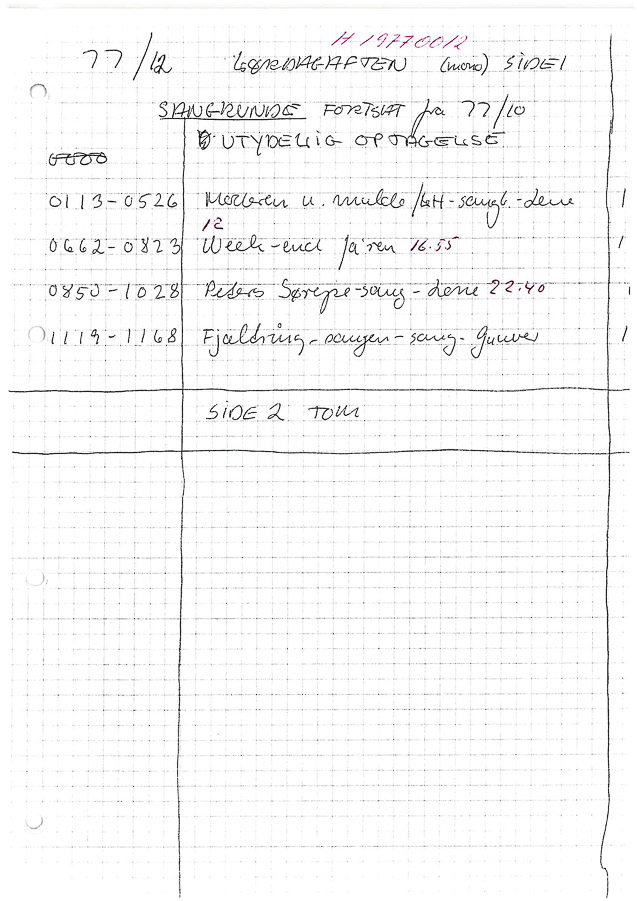 H 19770012
77/12 LØRDAGAFTEN (mono) SIDE 1
SANGRUNDE FORTSAT fra 77/10
UTYDELIG OPTAGELSE
0000
0113-0526 u. mulde /LH-sangb.-Lene 1
12
0662-0823 Week-end 16.55 1
0850-1028 Peters Sørepe-sang-Lene 22.40 1
1119-1168 Fjaldring-sangen-sang-Gunver 1
SIDE 2 TOM